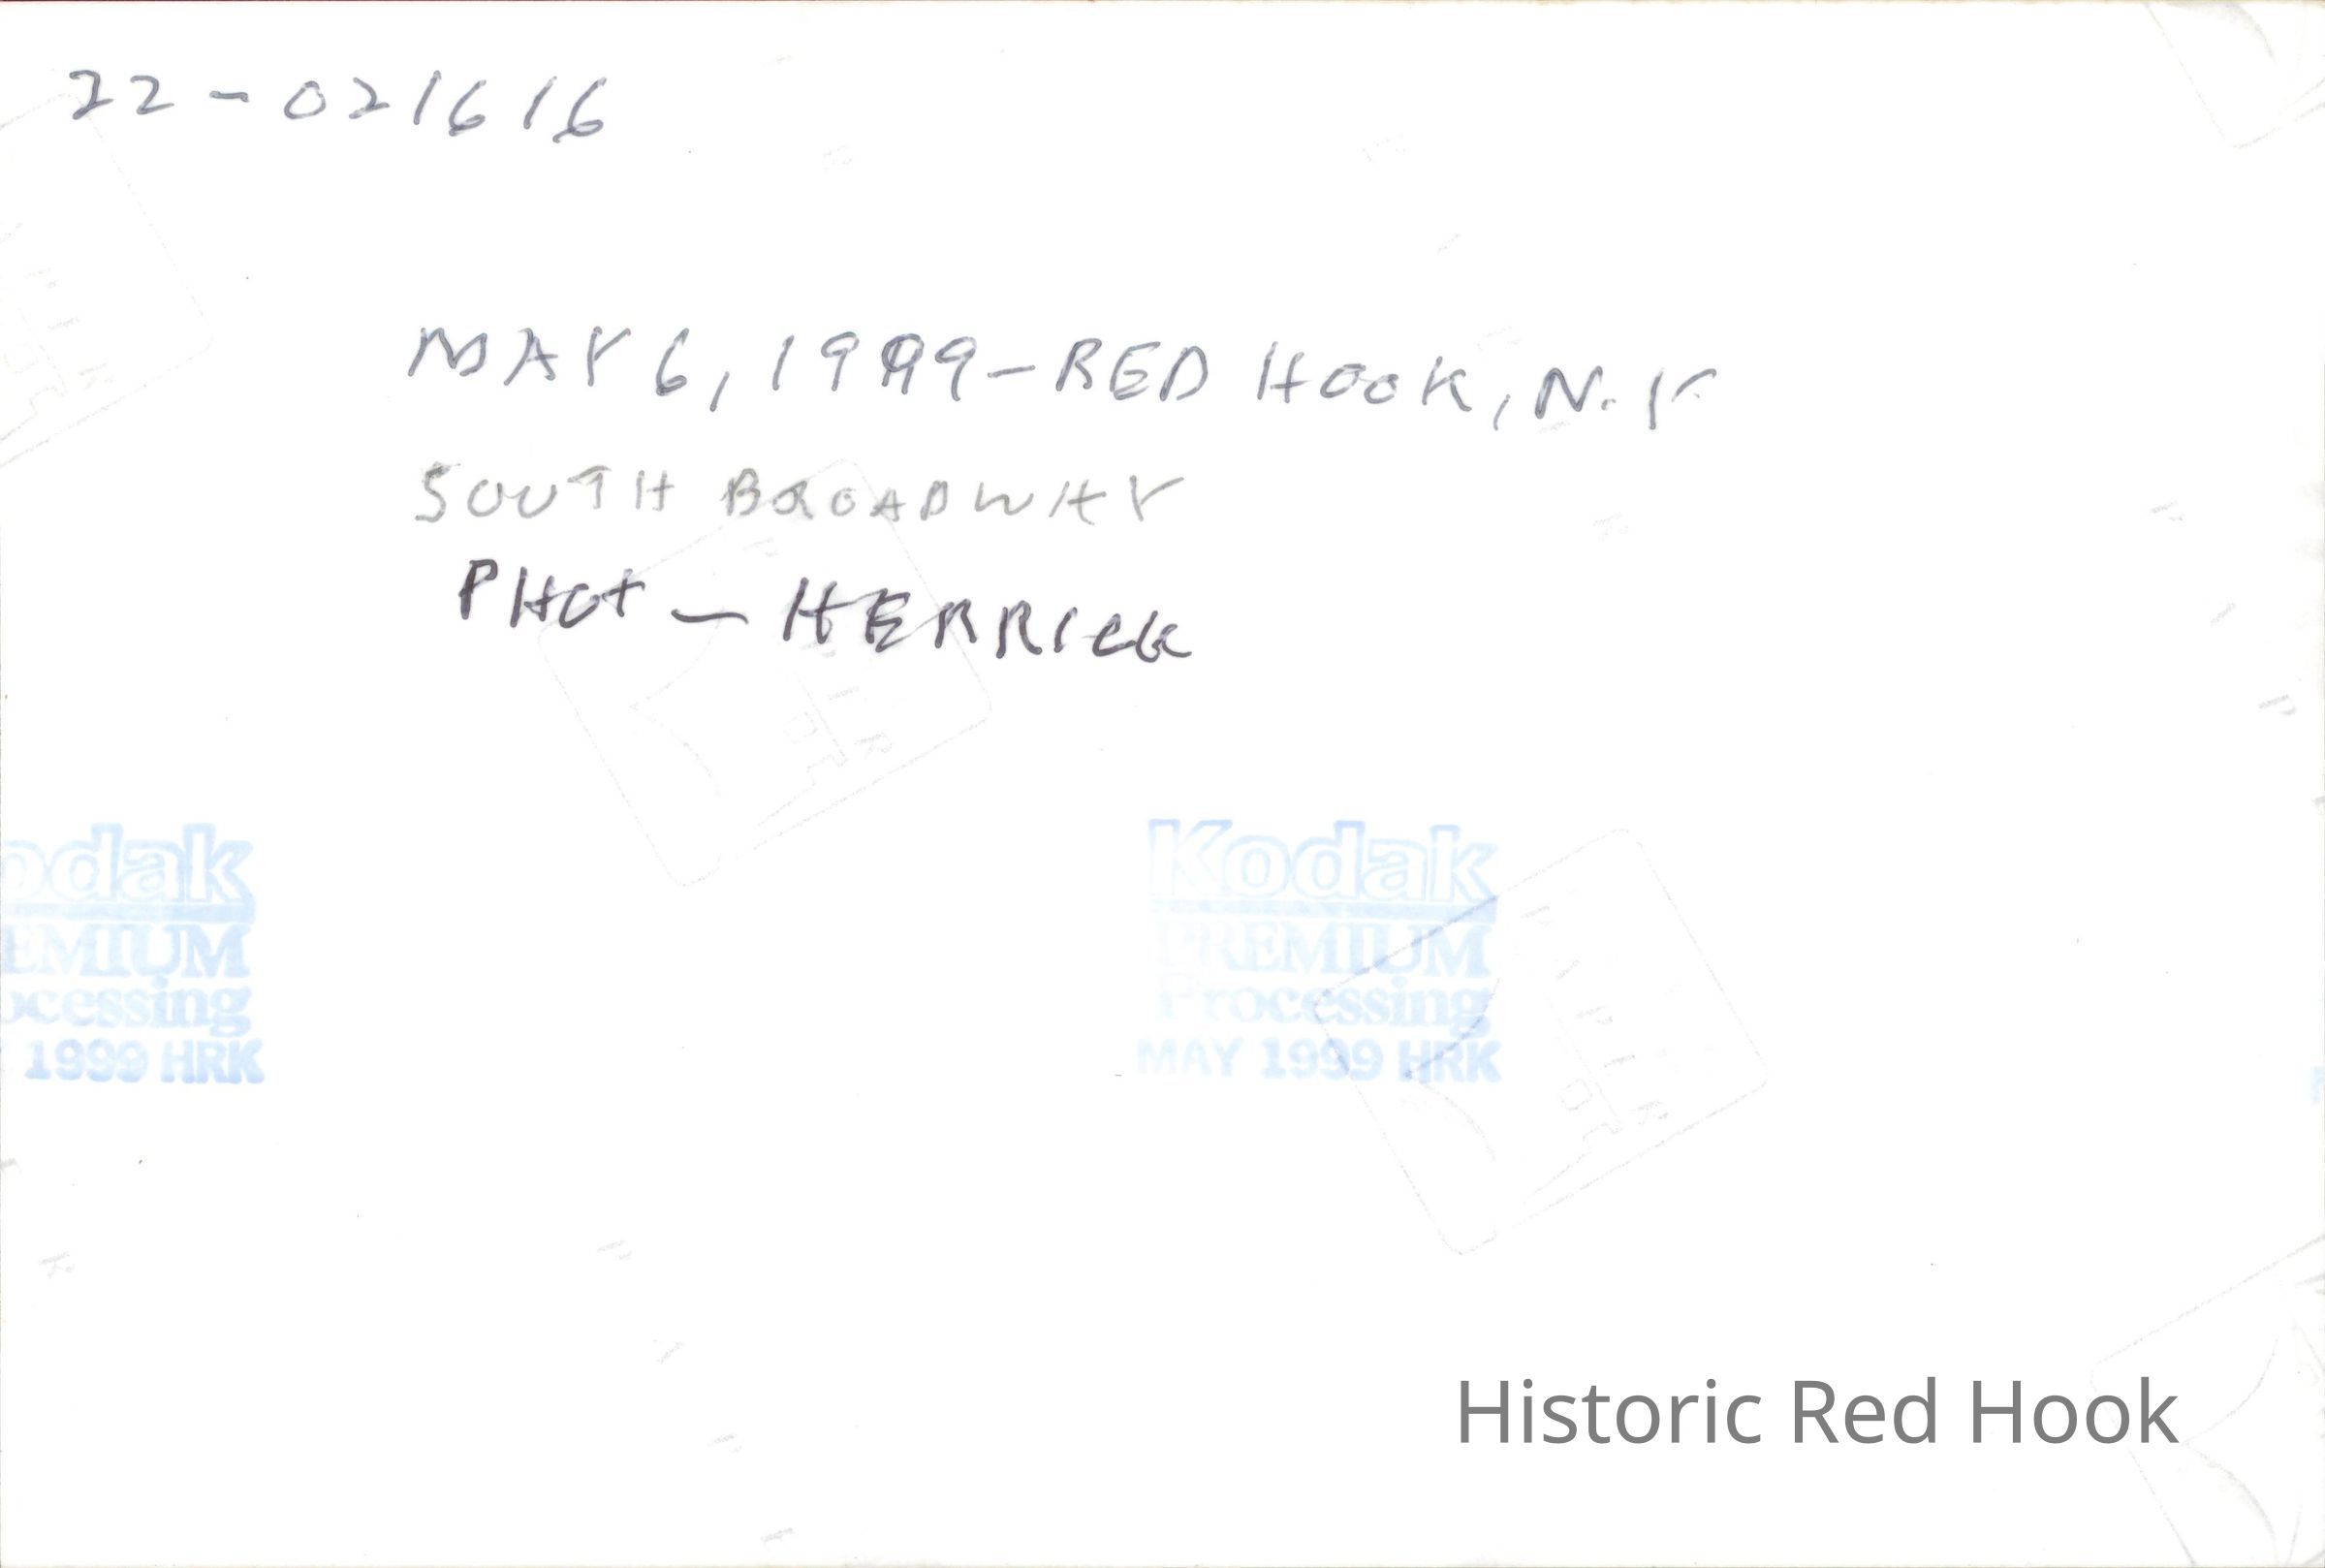 22-021616
MAY 6, 1999-RED HOOK, N.Y.
SOUTH BROADWAY
PHOT - HERRICK
odak
EMIUM
ocessing
1999 HRK
Kodak
PREMIUM
Processing
MAY 1999 HRK
Historic Red Hook